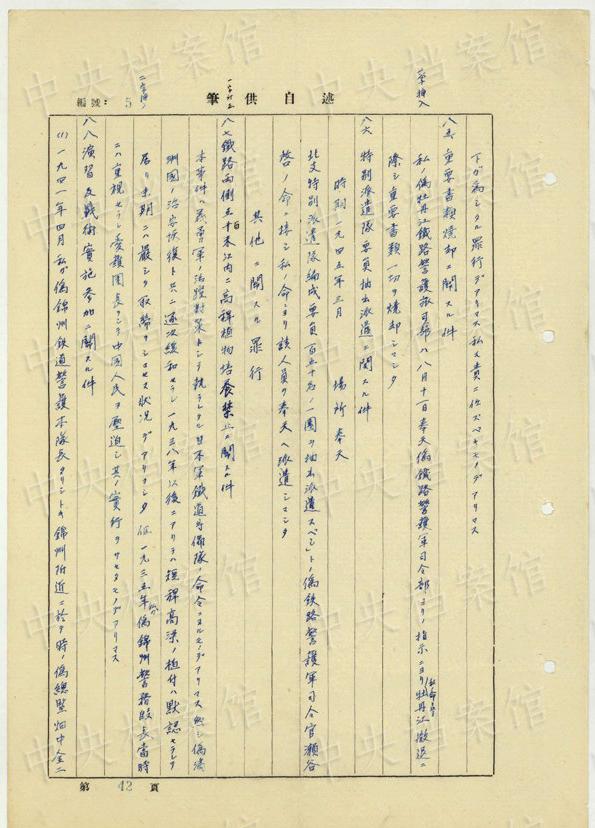 筆供自述
編號: 5
一字挿入
下ガ為シタル罪行デアリマス私ハ責ニ任スベキモノデアリマス
八五 重要書類焼却ニ関スル件
私ノ偽牡丹江鐵路警護旅司令部ハ八月十一日奉天偽鐵路警護軍司令部ヨリノ指示ニヨリ牡丹江撤退ニ
際シ重要書類一切ヲ焼却シマシタ
八六 特別派遣隊要員抽出派遣ニ関スル件
時期 一九四五年三月 場所 奉天
北支特別派遣隊編成要員百五十名ノ一團ヲ抽出派遣スベシトノ偽鉄路警護軍司令官瀬谷
啓ノ命ニ接シ私ノ命ヨリ該人員ヲ奉天ヘ派遣シマシタ
其他ニ関スル罪行
八七 鐵路両側五百米以内ニ高稈植物培養禁止ニ関スル件
本事件ハ義勇軍ノ活躍対策トシテ執ラレタル日本軍鐵道守備隊ノ命令ニヨルモノデアリマス然シ偽満
洲國ノ治安恢復ト共ニ逐次緩和セラレ一九三八年以後ニアリテハ短稈高粱ノ植付ハ黙認セラレテ
居リ末期ニハ厳シク取締ラレザル状況デアリマシタ 但一九三五年偽錦州警務段長当時
ニハ重視セラレ愛護團長ヲシテ中國人民ヲ壓迫シ其ノ實行ヲサセタモノデアリマス
八八 演習及戦術實施参加ニ関スル件
(1) 一九四一年四月私ガ偽錦州鉄道警護本隊長タリシトキ錦州附近ニ於テ時ノ偽總監畑中金二
第 42 頁
中央档案馆